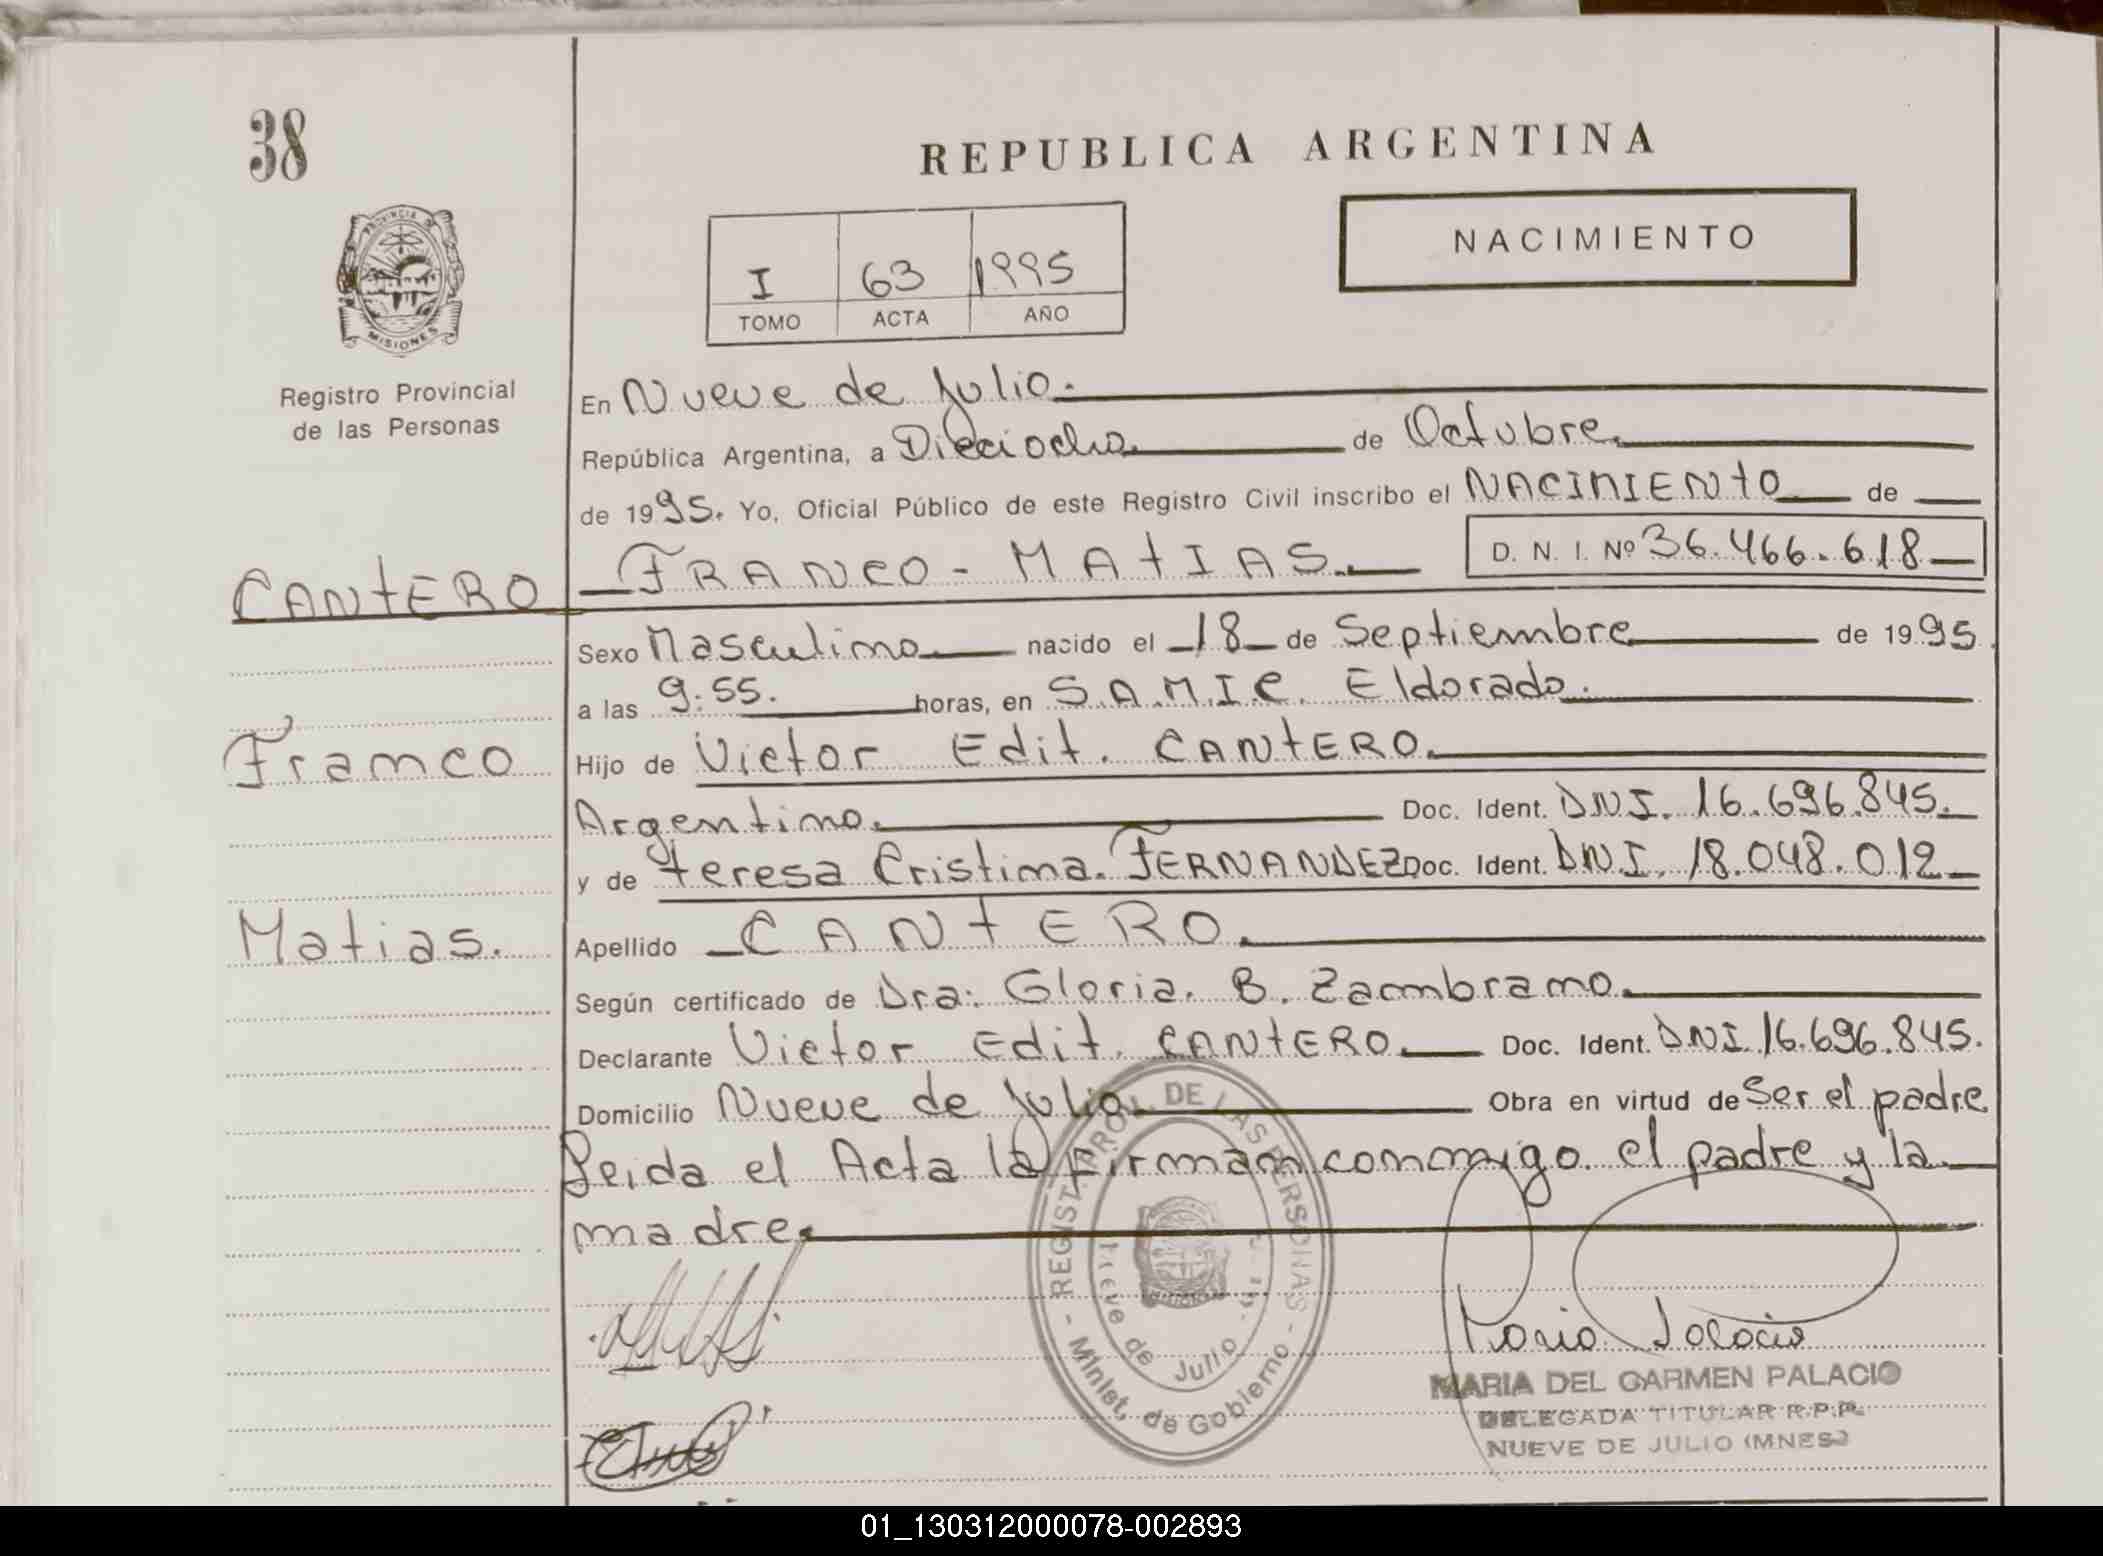 38
REPUBLICA ARGENTINA
PROVINCIA DE
MISIONES
I 63 1995
TOMO ACTA AÑO
NACIMIENTO
Registro Provincial
de las Personas
En Nueve de Julio.
República Argentina, a Dieciocho de Octubre
de 1995. Yo, Oficial Público de este Registro Civil inscribo el NACIMIENTO de
CANTERO FRANCO - MATIAS. D. N. I. Nº 36.466.618
Sexo Masculino nacido el 18 de Septiembre de 1995
a las 9:55. horas, en S.A.M.I.C. Eldorado.
Franco
Hijo de Victor Edit. CANTERO.
Argentino. Doc. Ident. DNI. 16.696.845.
y de Teresa Cristina. FERNANDEZ Doc. Ident. DNI. 18.048.012
Matias.
Apellido CANTERO.
Según certificado de Dra: Gloria. B. Zambrano.
Declarante Victor Edit. CANTERO. Doc. Ident. DNI. 16.696.845.
Domicilio Nueve de Julio Obra en virtud de Ser el padre
Leida el Acta la firman conmigo el padre y la
madre.
REGIST. PROV. DE LAS PERSONAS - Minist. de Gobierno -
Nueve de Julio
MARIA DEL CARMEN PALACIO
DELEGADA TITULAR R.P.P.
NUEVE DE JULIO (MNES)
01_130312000078-002893